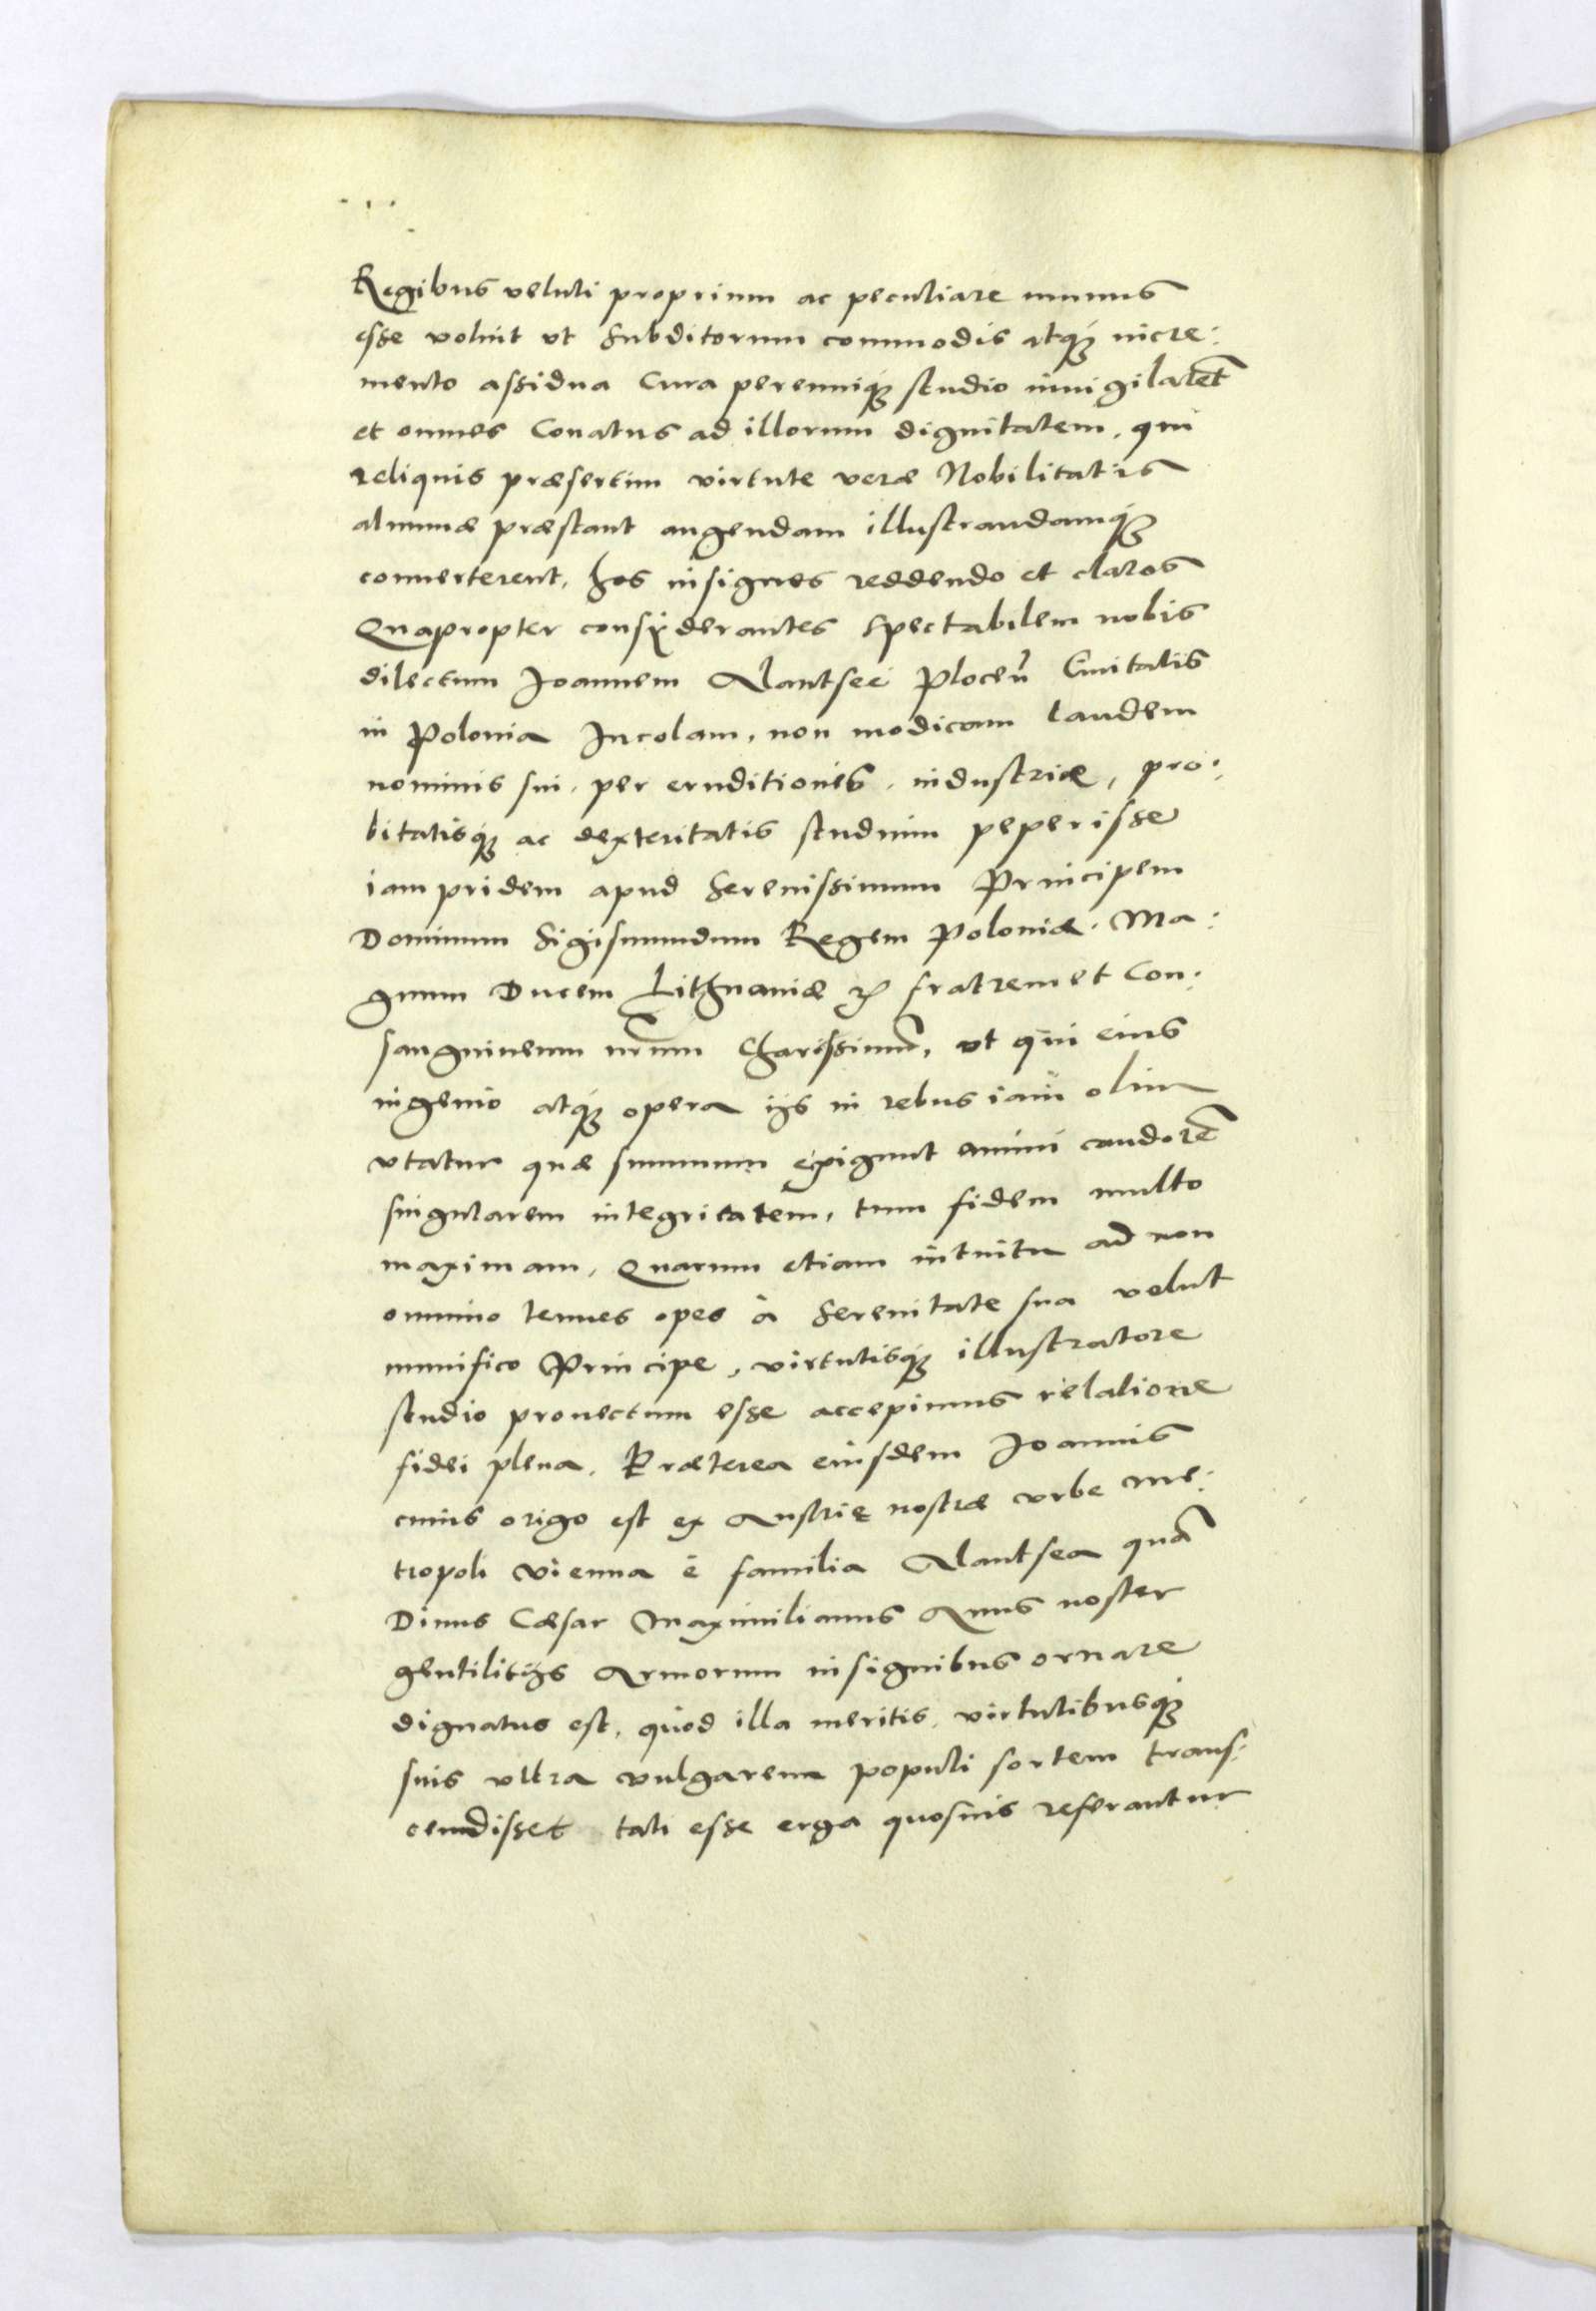 Regibus veluti proprium ac peculiare munus
esse voluit ut subditorum commodis atq́ꝫ incre:
mento assidua cura perenniq́ꝫ studio inuigilarēt
et omnes conatus ad illorum dignitatem, qui
reliquis præsertim virtute veræ Nobilitatis
alumnæ præstant augendam illustrandamq́ꝫ
conuerterent, hos insignes reddendo et claros
Quapropter consyderantes spectabilem nobis
dilectum Joannem Alantsee Plocen̄ Ciuitatis
in Polonia Incolam, non modicam laudem
nominis sui, per eruditionis, industriæ, pro:
bitatisq́ꝫ ac dexteritatis studium peperisse
iam pridem apud Serenissimum Principem
Dominum Sigismundum Regem Poloniæ. Ma:
gnum Ducem Lithuaniæ ꝛc̄ fratrem et Con:
sanguineum nr̄um Charissimū, ut qui eius
ingenio atq́ꝫ opera ijs in rebus iam olim
utatur quæ summum exigunt animi candorē
singularem integritatem, tum fidem multo
maximam, Quarum etiam intuitu ad non
omnino tenues opes à Serenitate sua velut
munifico Principe, virtutisq́ꝫ illustratore
studio prouectum esse accepimus relatione
fidei plena. Præterea eiusdem Joannis
cuius origo est ex Austrię nostræ urbe me:
tropoli Vienna è familia Alantsea quā
Diuus Cæsar Maximilianus Auus noster
gentilitijs Armorum insignibus ornare
dignatus est, quod illa meritis, virtutibusq́ꝫ
suis ultra vulgarem populi sortem trans:
cendisset tali esse erga quosuis referantur